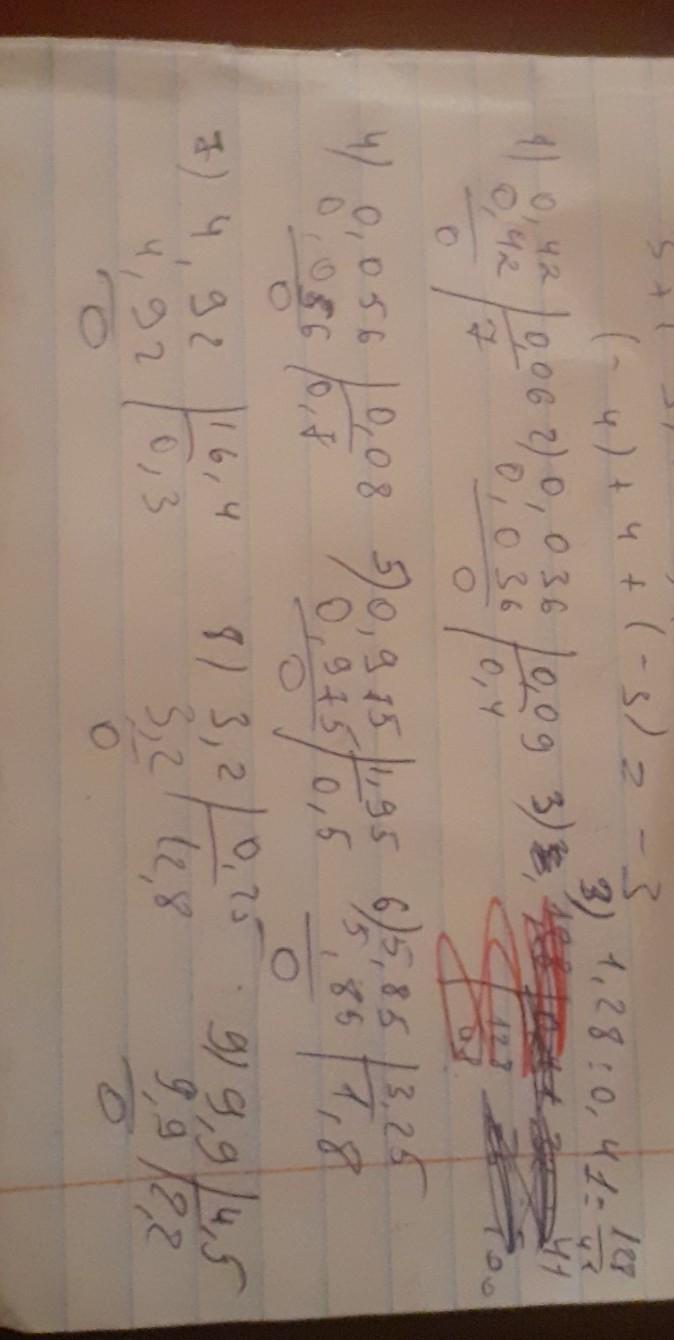 5 + (
(-4) + 4 + (-3) = -3
3) 1,28 : 0,41 = 128
1) 0,42 | 0,06 2) 0,036 | 0,09 3)
0,42 | 7 0,036 | 0,4
0 0
4) 0,056 | 0,08 5) 0,975 | 1,95 6) 5,85 | 3,25
0,056 | 0,7 0,975 | 0,5 5,85 | 1,8
0 0 0
7) 4,92 | 16,4 8) 3,2 | 0,25 9) 9,9 | 4,5
4,92 | 0,3 3,2 | 12,8 9,9 | 2,2
0 0 0